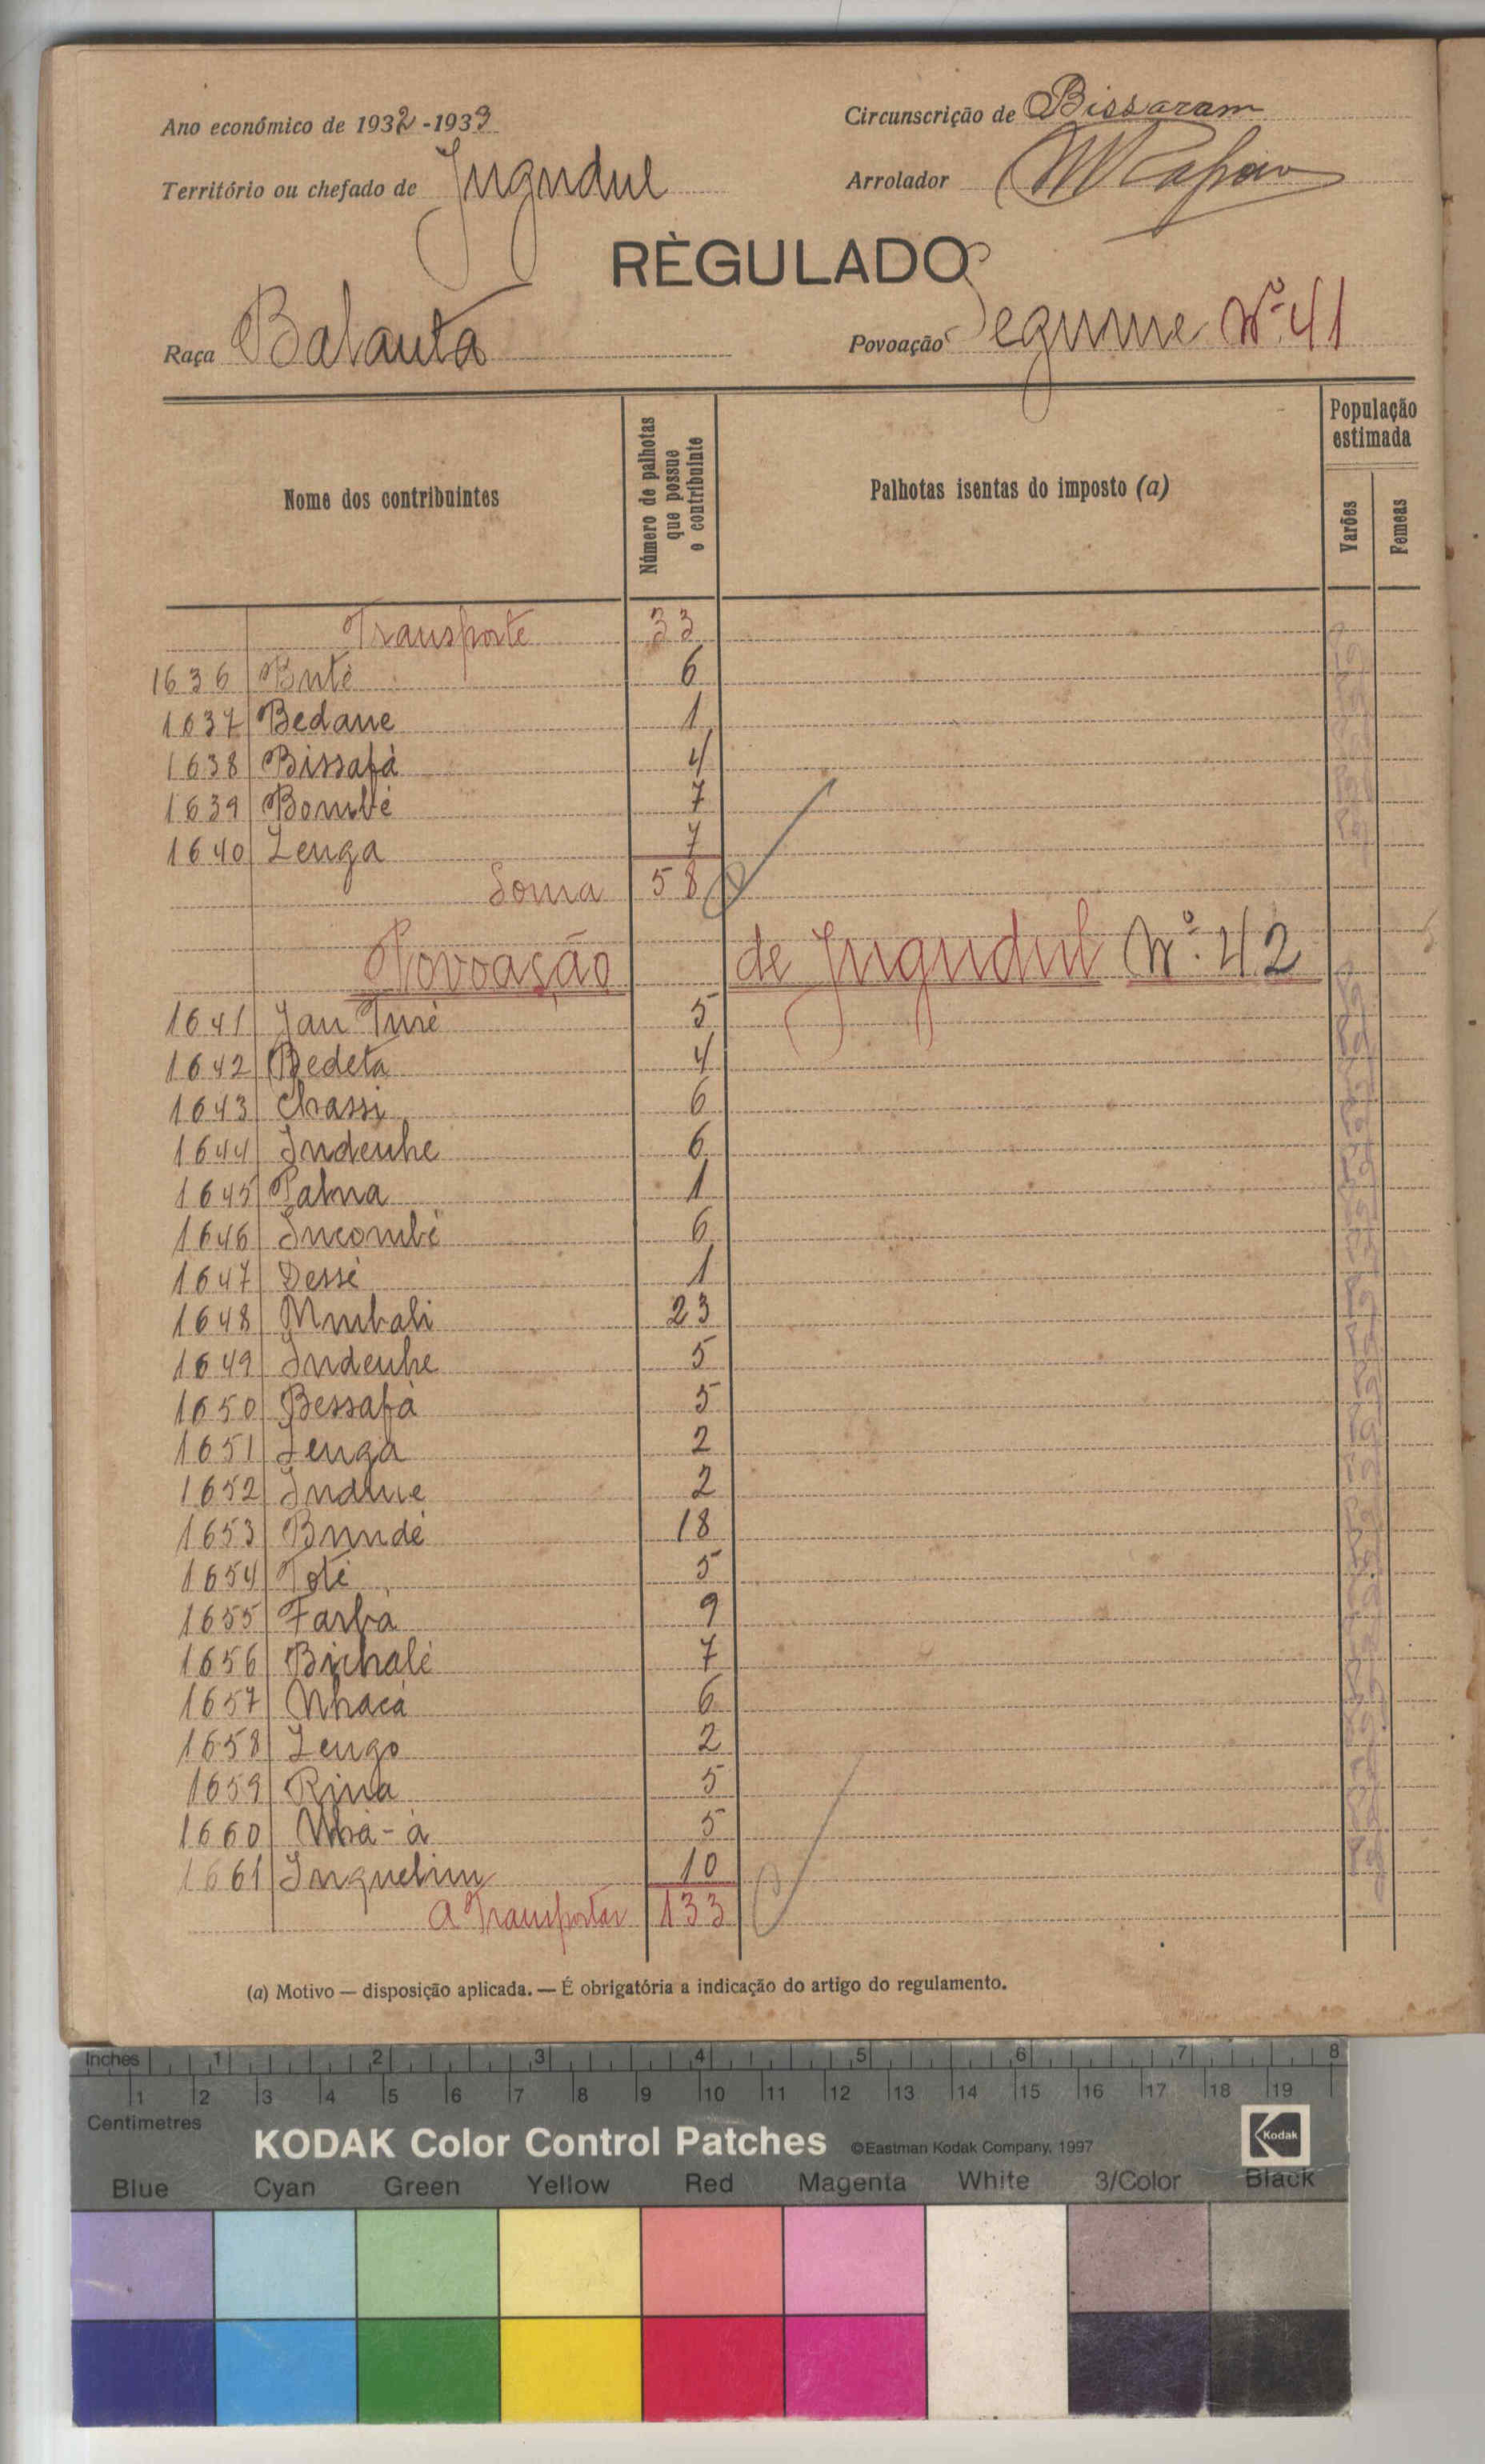 Ano económico de 1932-1933
Circunscrição de Bissoram
Território ou chefado de Jugudul
Arrolador
RÈGULADO
Raça Balanta
Povoação Segume Nº 41
Nome dos contribuintes
Número de palhotas que possue o contribuinte
Palhotas isentas do imposto (a)
População estimada
Varões
Femeas
Transporte 33
1636 Buté 6
1637 Bedane 1
1638 Bissafà 4
1639 Bombé 7
1640 Lenga 7
Soma 58
Povoação de Jugudul Nº. 42
1641 Jau Turé 5
1642 Bedeta 4
1643 Chassi 6
1644 Indenhe 6
1645 Palna 1
1646 Incombé 6
1647 Dessé 1
1648 Mubali 23
1649 Indenhe 5
1650 Bessafà 5
1651 Lenga 2
1652 Indue 2
1653 Bundé 18
1654 Toté 5
1655 Farbà 9
1656 Bichalé 7
1657 Nhacà 6
1658 Lengo 2
1659 Rina 5
1660 Nhà-à 5
1661 Inquelim 10
A Transportar 133
(a) Motivo — disposição aplicada. — É obrigatória a indicação do artigo do regulamento.
Inches 1 2 3 4 5 6 7 8
1 2 3 4 5 6 7 8 9 10 11 12 13 14 15 16 17 18 19
Centimetres
KODAK Color Control Patches ©Eastman Kodak Company, 1997 Kodak
Blue Cyan Green Yellow Red Magenta White 3/Color Black